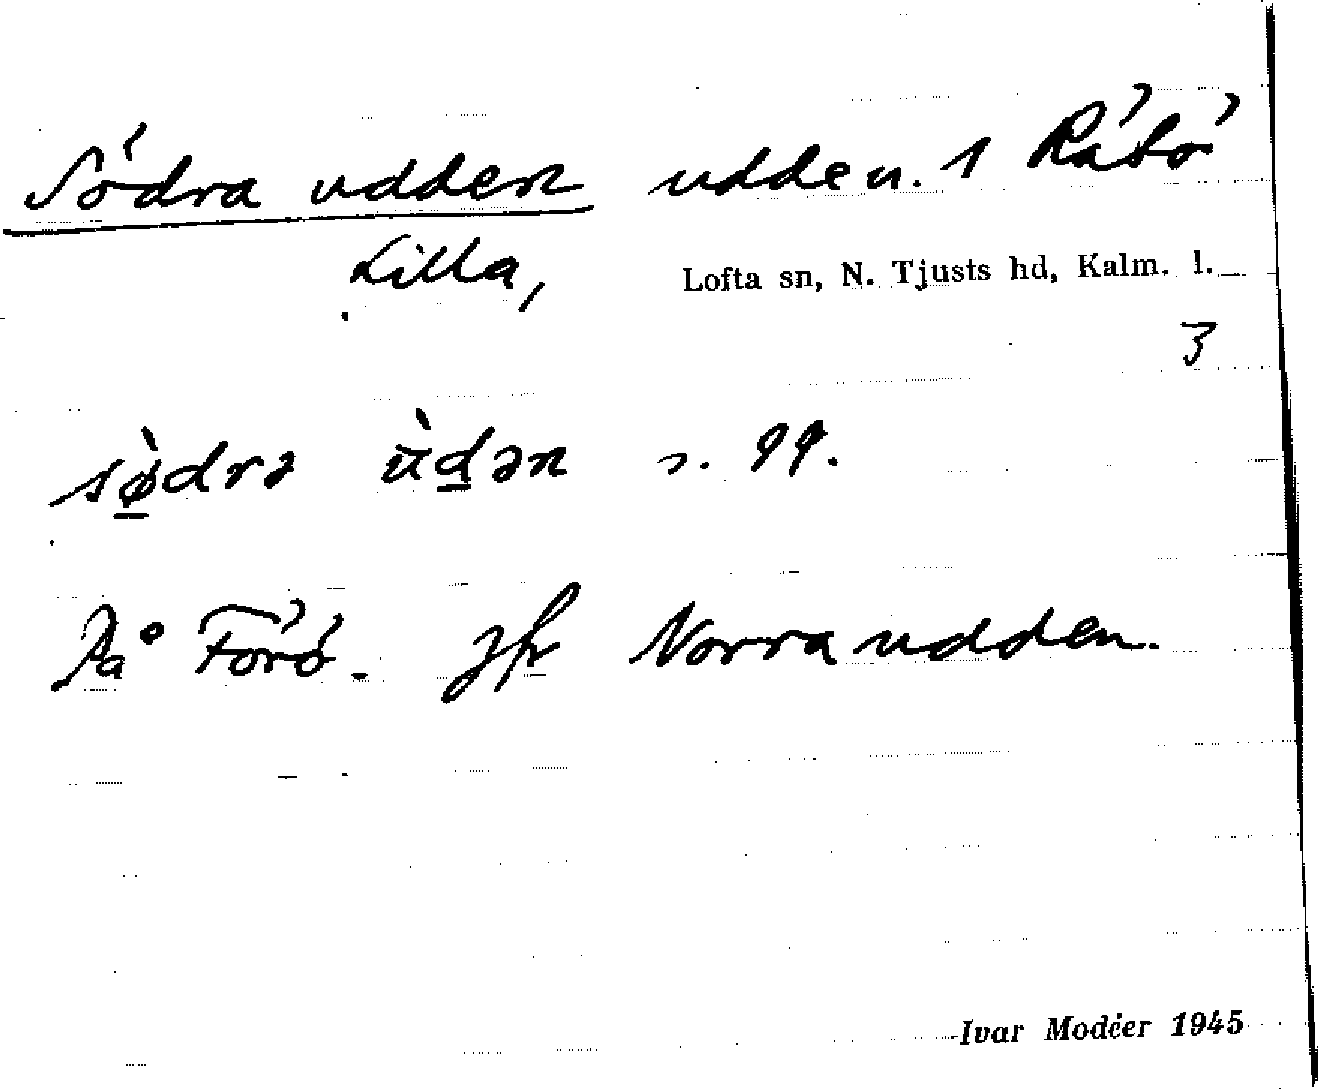 Södra udden udde u. 1 Råbö
Lilla,
Lofta sn, N. Tjusts hd, Kalm. l.
3
sø̀drə ùdən s. 99.
På Förö. Jfr Norra udden.
Ivar Modéer 1945